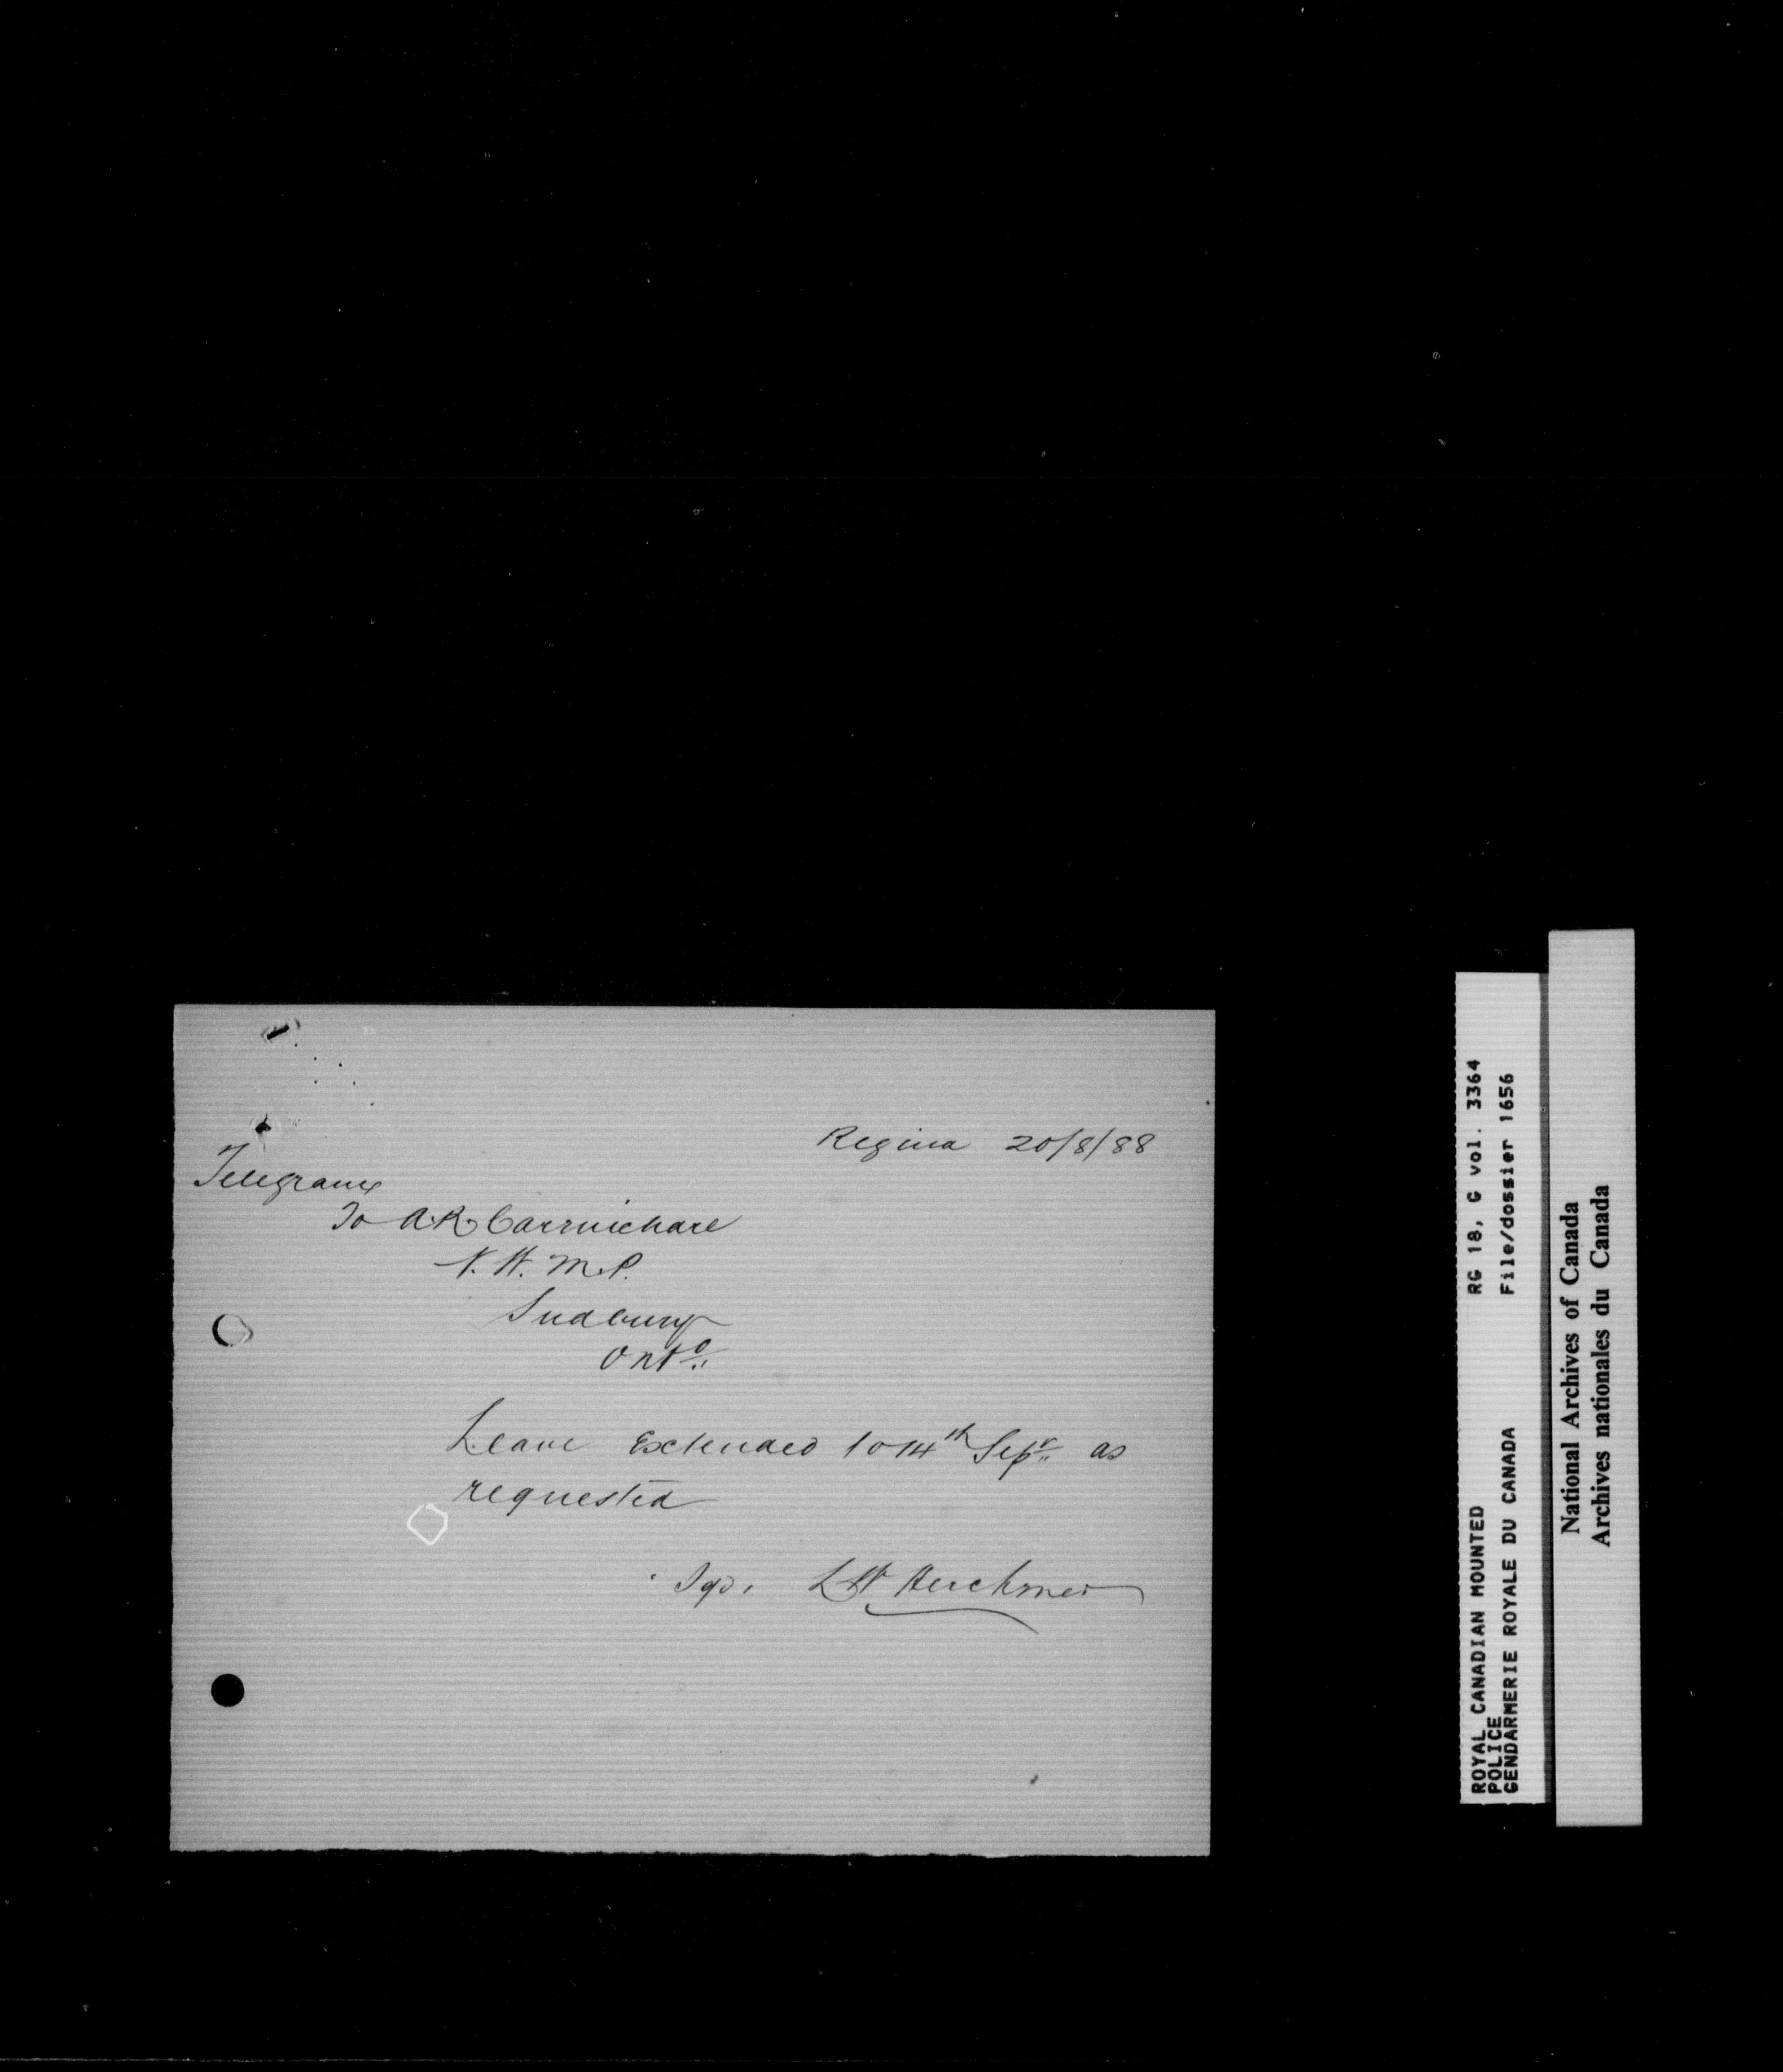 Regina 20/8/88
Telegram
To A.R. Carmichael
N.W.M.P.
Sudbury
Onto.
Leave Extended to 14th Sepr. as
requested
Sgd. LW Herchmer
ROYAL CANADIAN MOUNTED RG 18, G vol. 3364
POLICE
GENDARMERIE ROYALE DU CANADA File/dossier 1656
National Archives of Canada
Archives nationales du Canada